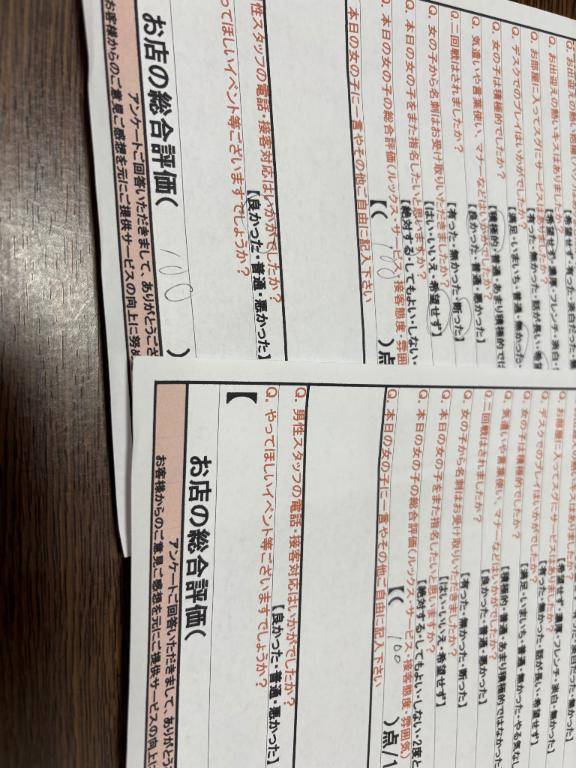 Q. お出迎えの熱いキスはありました
Q. お部屋に入ってスグにサービスはありましたか?
【有った・無かった・話が長い・希望
Q. デスクでのプレイはいかがでしたか?
【満足・いまいち・普通・無かった・
Q. 女の子は積極的でしたか?
【積極的・普通・あまり積極的では
Q. 気遣いや言葉使い、マナーなどはいかがでしたか?
【良かった・普通・悪かった】
Q. 二回戦はされましたか?
【有った・無かった・断った】
Q. 女の子から名刺はお受け取りいただきましたか?
【はい・いいえ・希望せず】
Q. 本日の女の子をまた指名したいと思いますか?
【絶対する・してもよい・しない・
Q. 本日の女の子の総合評価(ルックス・サービス・接客態度・雰囲
【( 100 )点
本日の女の子に一言やその他ご自由に記入下さい
性スタッフの電話・接客対応はいかがでしたか?
【良かった・普通・悪かった】
ってほしいイベント等ございますでしょうか?
お店の総合評価( 100 )
アンケートご回答いただきまして、ありがとうござ
お客様からのご意見ご感想を元にご提供サービスの向上に努め
お部屋に入ってスグにサービスはありましたか?
【有った・無かった・話が長い・希望せず】
Q. デスクでのプレイはいかがでしたか?
【満足・いまいち・普通・無かった・やる気なし
Q. 女の子は積極的でしたか?
【積極的・普通・あまり積極的ではなかった
Q. 気遣いや言葉使い、マナーなどはいかがでしたか?
【良かった・普通・悪かった】
Q. 二回戦はされましたか?
【有った・無かった・断った】
Q. 女の子から名刺はお受け取りいただきましたか?
【はい・いいえ・希望せず】
Q. 本日の女の子をまた指名したいと思いますか?
【絶対する・してもよい・しない・2度と
Q. 本日の女の子の総合評価(ルックス・サービス・接客態度・雰囲気)
【( 100 )点/1
Q. 本日の女の子に一言やその他ご自由に記入下さい
Q. 男性スタッフの電話・接客対応はいかがでしたか?
【良かった・普通・悪かった】
Q. やってほしいイベント等ございますでしょうか?
【
お店の総合評価(
アンケートご回答いただきまして、ありがとう
お客様からのご意見ご感想を元にご提供サービスの向上に